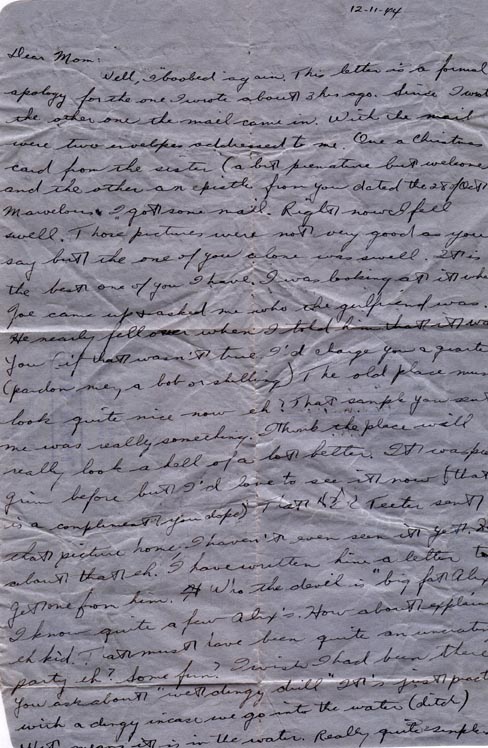 12-11-44
Dear Mom:
Well, I boobed again. This letter is a formal
apology for the one I wrote about 3 hrs ago. Since I
the other one the mail came in. With the mail
were two envelopes addressed to me. One a Christmas
card from the sister (a bit premature but welcome
and the other an epistle from you dated the 28 of Oct
Marvelous I got some mail. Right now I feel
swell. Those pictures were not very good as you
say but the one of you alone was swell. It is
the best one of you I have. I was looking at it
Joe came up & asked me who the girlfriend was.
He nearly fell over when I told him that it
you if that wasn't true I'd charge you a
(pardon me, a bob or shilling) The old place
look quite nice now eh? That sample you sent
me was really something. I think the place will
really look a hell of a lot better. It was
grim before but I'd love to see it now (that
is a complement you dope) That Teeter sent
that picture home, I haven't even seen it yet.
about that eh. I have written him a letter to
get one from him. Who the devil is "big fat Alix
I know quite a few Alix's. How about
eh kid. That must have been quite an
party eh? Some fun? I wish I had been there
You ask about "wet dingy drill" It's just
with a dingy incase we go into the water (ditch)
Wet means it is in the water. Really quite simple